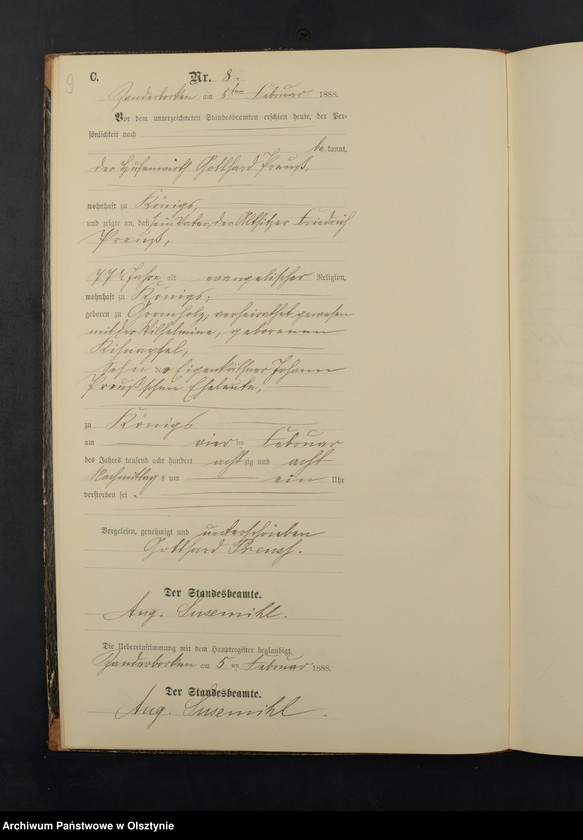 9
C.
Nr. 8.
am 5ten Februar 1888.
Vor dem unterzeichneten Standesbeamten erschien heute, der Per-
sönlichkeit nach
be kannt,
der Hufenwirth Gotthard Preuß,
wohnhaft zu Königs,
und zeigte an, daß sein Vater, der Altsitzer Friedrich
Preuß,
77 ½ Jahre alt evangelischer Religion,
wohnhaft zu Königs;
geboren zu verheirathet gewesen
mit der Wilhelmine, geborenen
Sohn der Eigenkäthner Johann
Preuß'schen Eheleute,
zu Königs
am vier ten Februar
des Jahres tausend acht hundert acht zig und acht
Nachmittag s um ein Uhr
verstorben sei.
Vorgelesen, genehmigt und unterschrieben
Gotthard Preuss.
Der Standesbeamte.
Aug. Susemihl.
Die Uebereinstimmung mit dem Hauptregister beglaubigt.
am 5 ten Februar 1888.
Der Standesbeamte.
Aug. Susemihl.
Archiwum Państwowe w Olsztynie